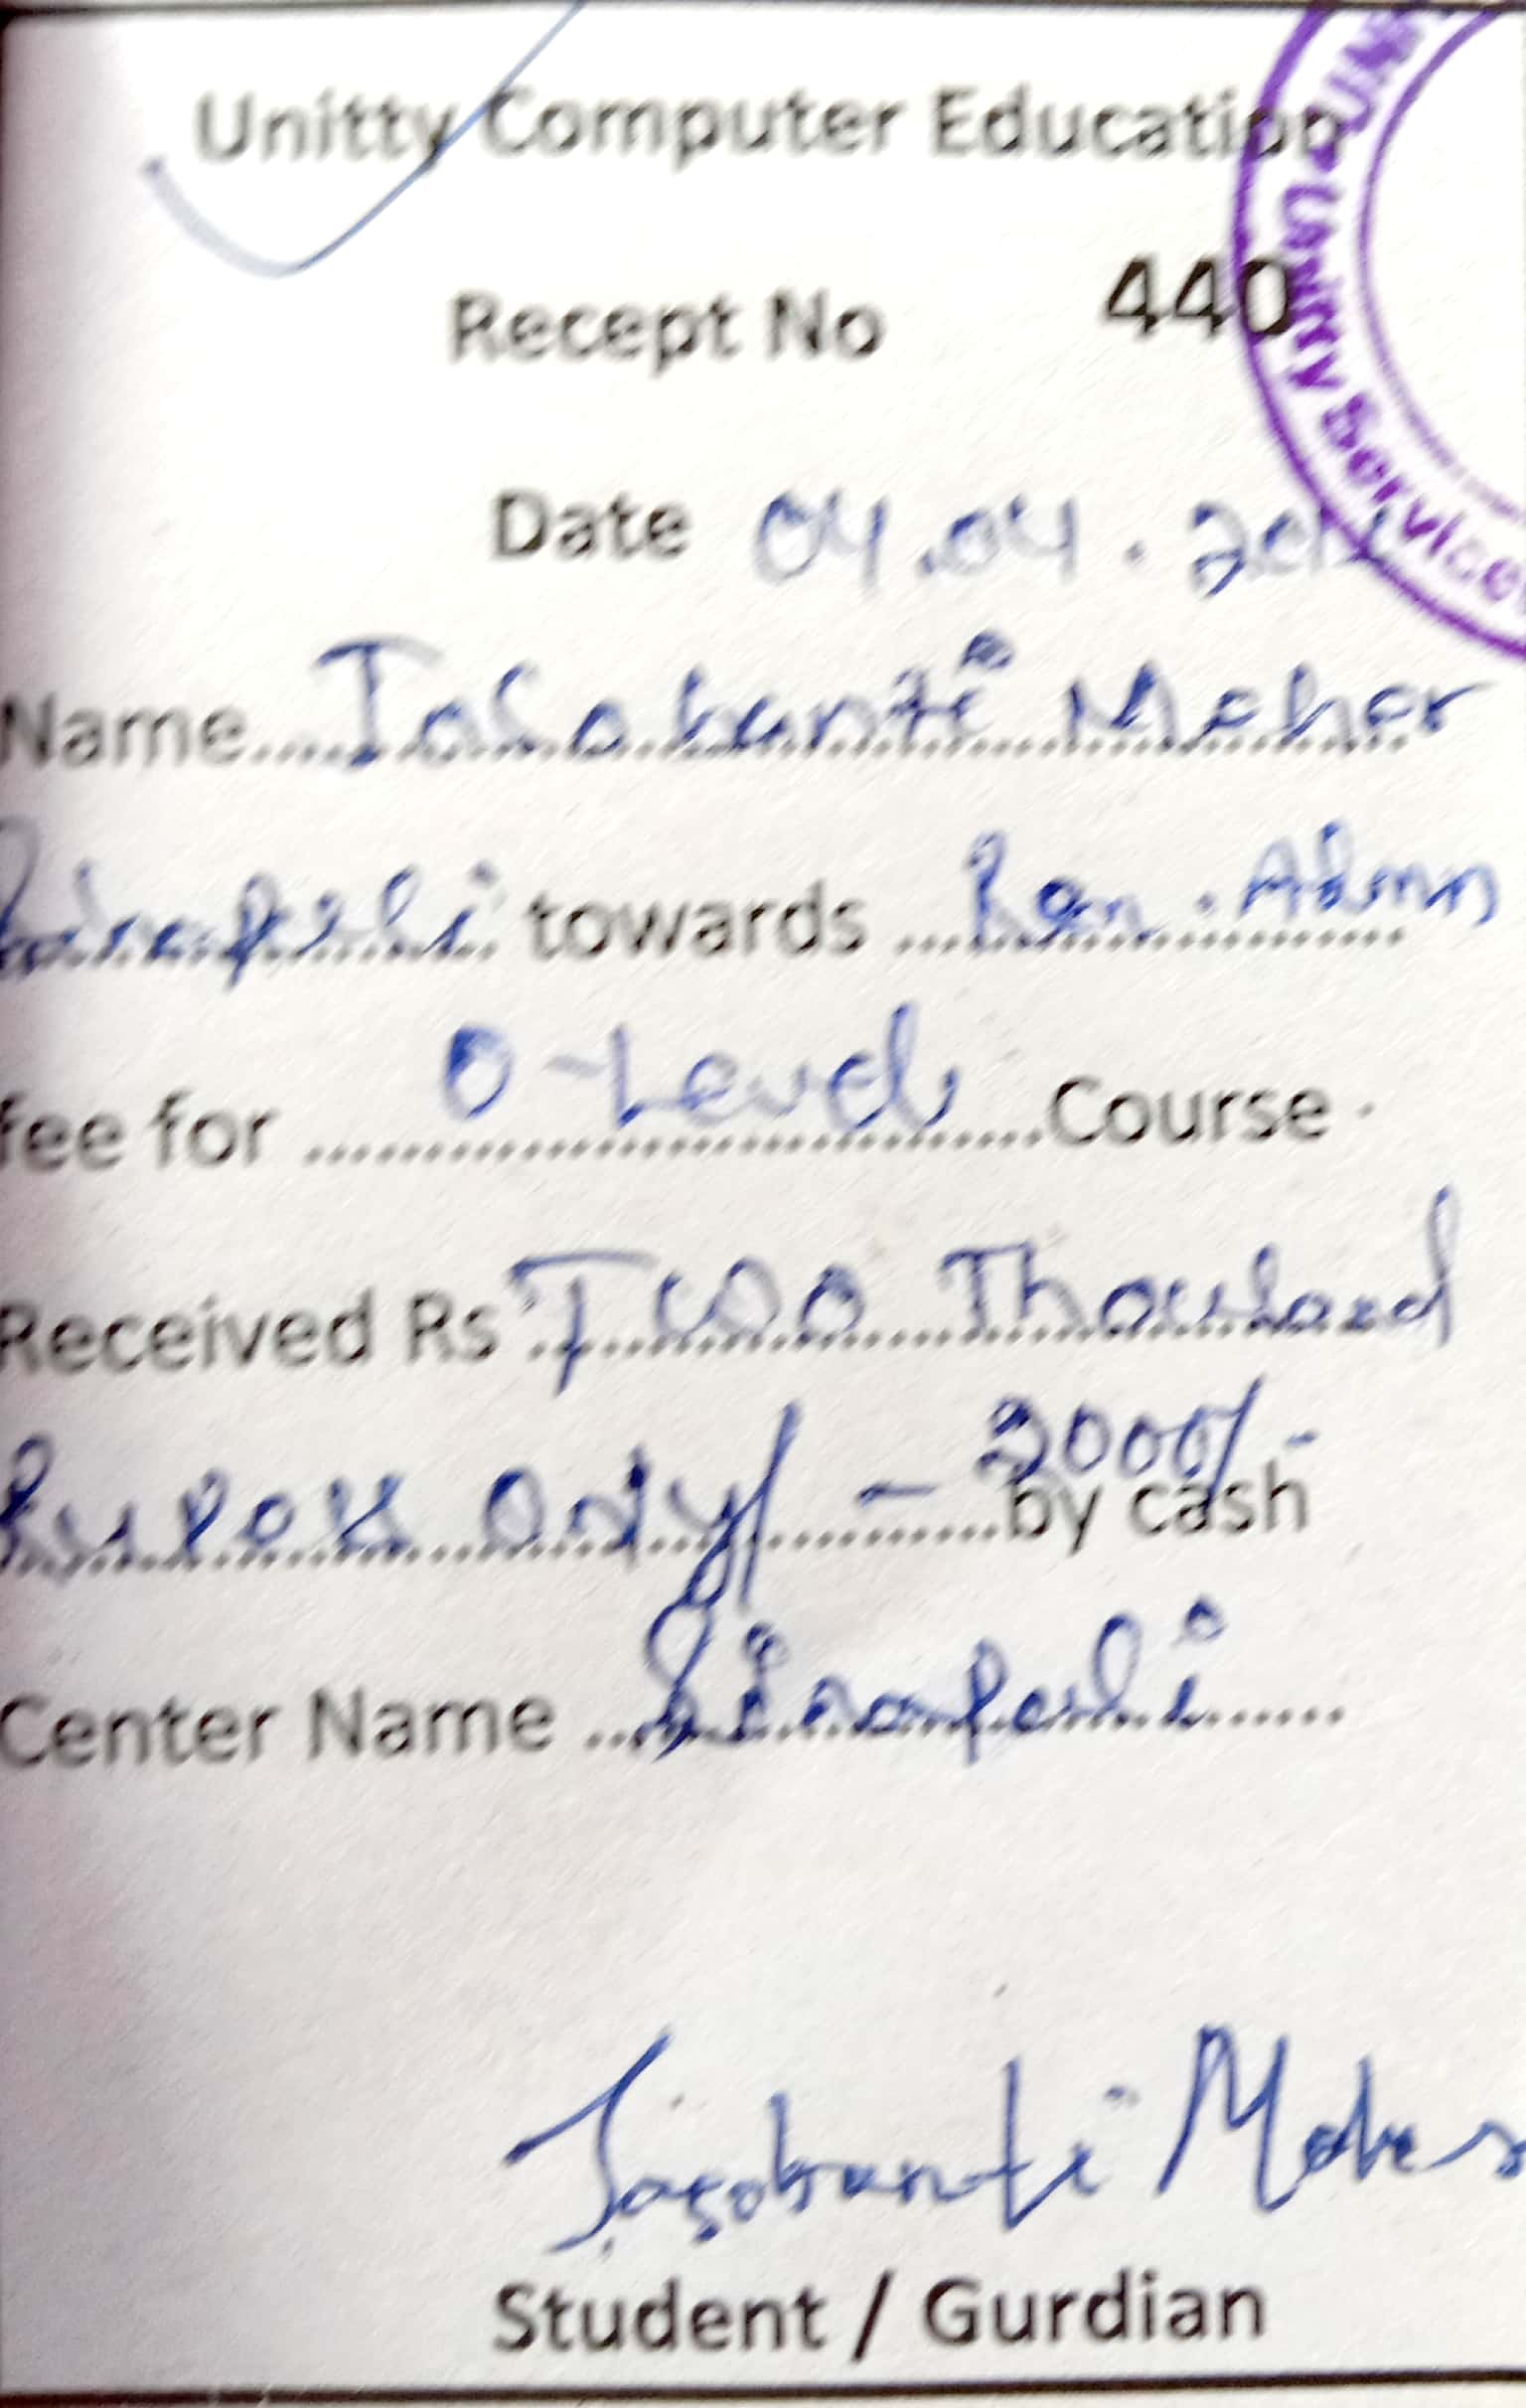 Unitty Computer Education
Recept No 440
Date 04.04.
Name.... Jasobanti Meher
towards ....
fee for .... O-Level ....Course
Received Rs Two Thousand
Rupees Only/- 2000/- by cash
Center Name ....
Unitty Services
Jasobanti Meher
Student / Gurdian